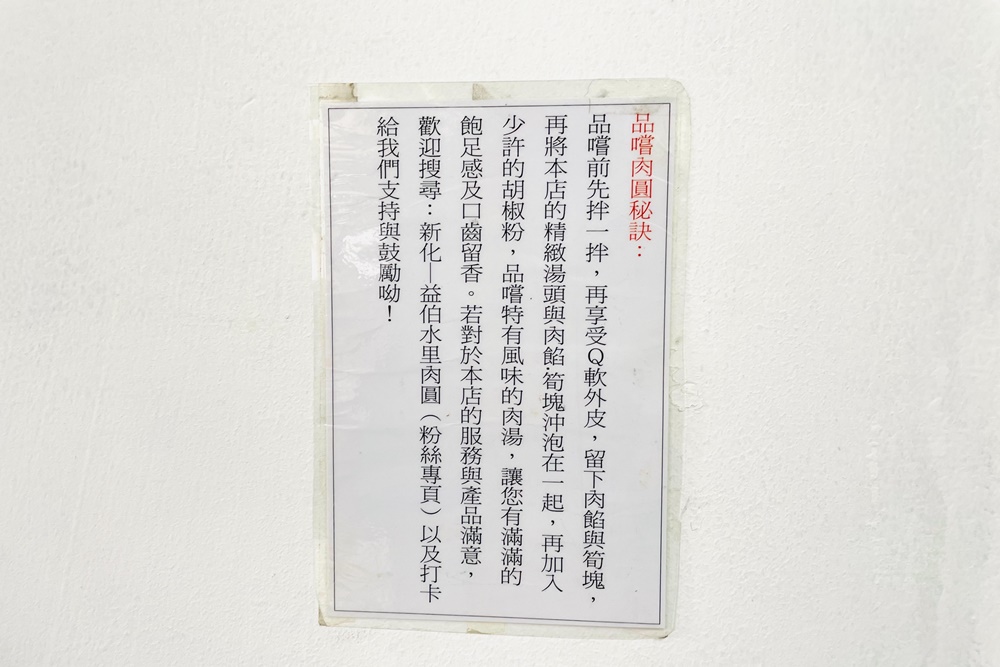 品嚐肉圓秘訣：
品嚐前先拌一拌，再享受Q軟外皮，留下肉餡與筍塊，
再將本店的精緻湯頭與肉餡.筍塊沖泡在一起，再加入
少許的胡椒粉，品嚐特有風味的肉湯，讓您有滿滿的
飽足感及口齒留香。若對於本店的服務與產品滿意，
歡迎搜尋：新化—益伯水里肉圓（粉絲專頁）以及打卡
給我們支持與鼓勵呦！